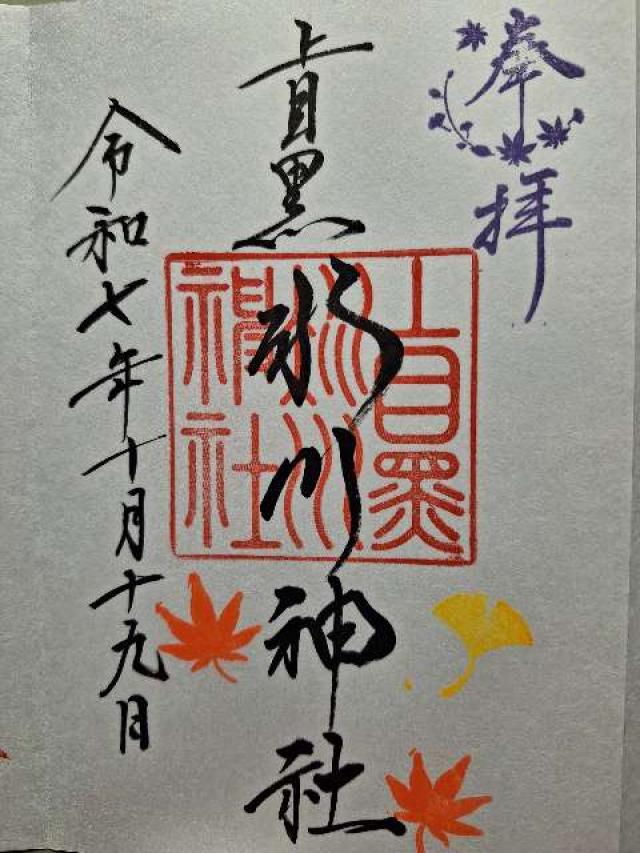 奉拝
上目黒氷川神社
上目黒
氷川
神社
令和七年十月十九日